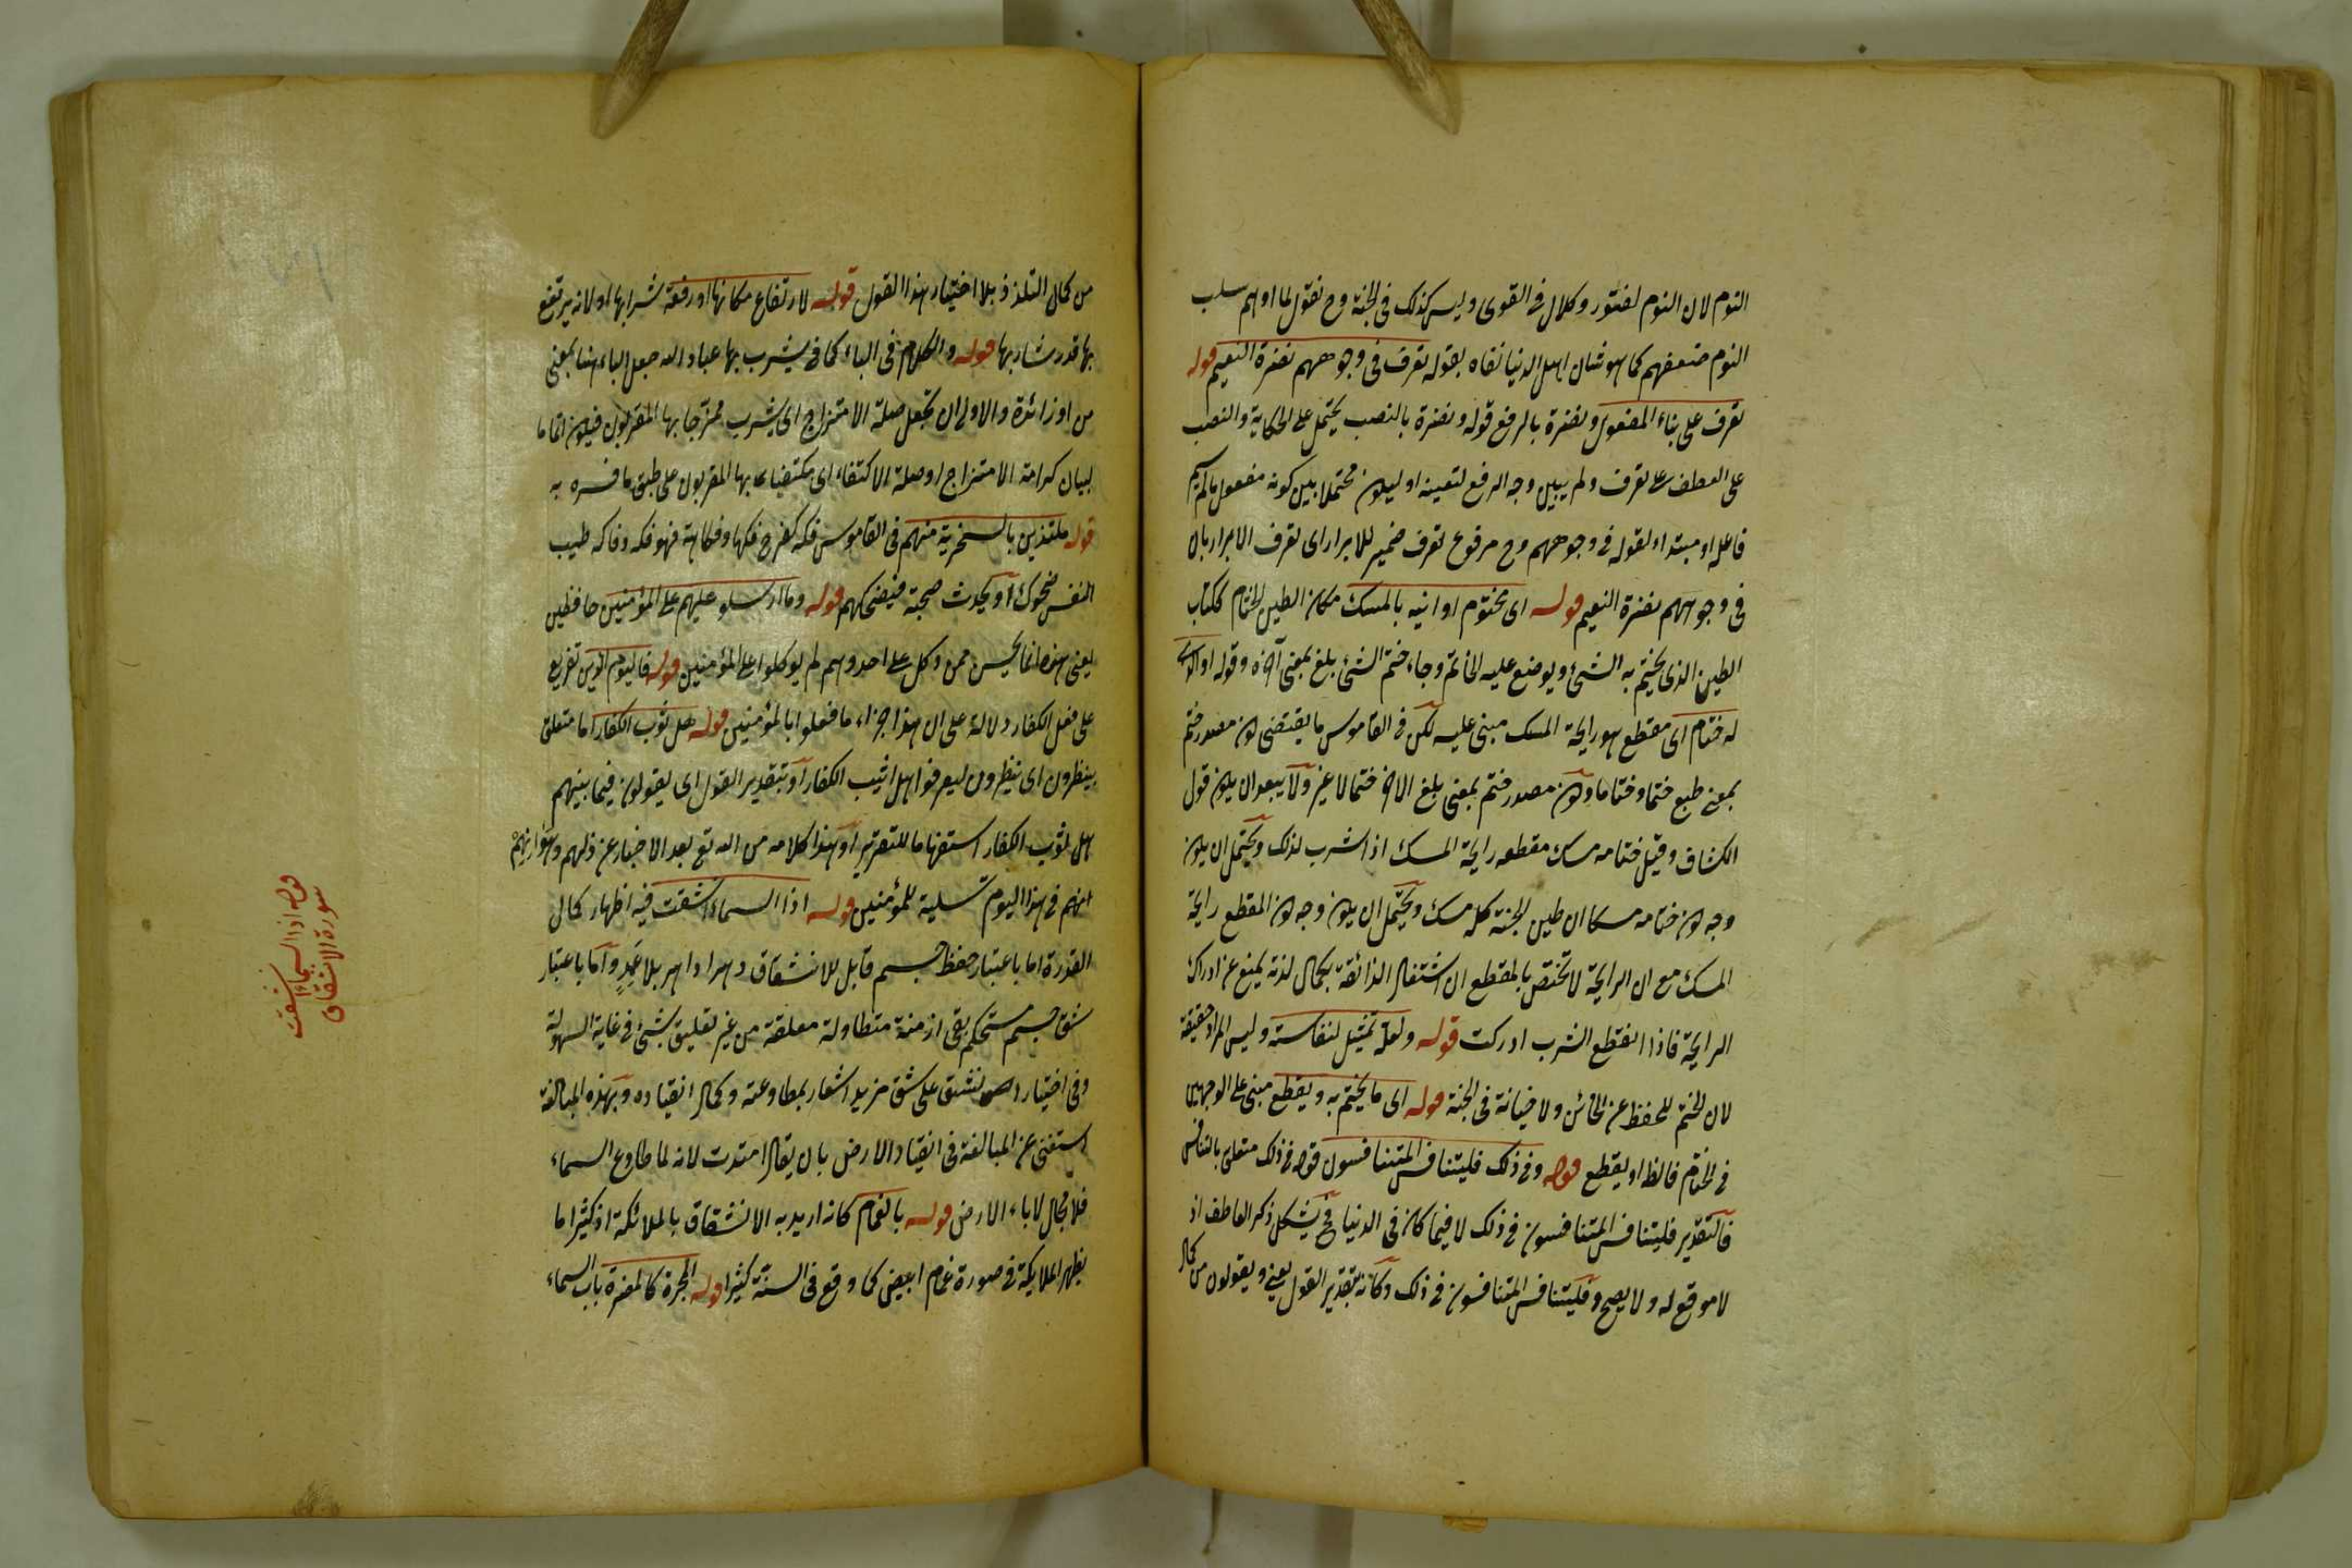 النوم لان النوم لفتور وكلال فى القوى وليس كذلك فى الجنة وح نقول لما اوهم سلب
النوم ضعفهم كما هو شان اهل الدنيا نفاه بقوله تعرف فى وجوههم نضرة النعيم قوله
تعرف على بناء المفعول ونضرة بالرفع قوله ونضرة بالنصب يحتمل على الحكاية والنصب
على العطف على تعرف ولم يبين وجه الرفع لتعينه او ليكون محتملا بين كونه مفعول ما لم يسم
فاعله او مبتدا ولقوله فى وجوههم وح مرفوع تعرف ضمير للابرار اى تعرف الابرار بان
فى وجوههم نضرة النعيم قوله اى مختوم اوانيه بالمسك مكان الطين الختام ككتاب
الطين الذى يختم به الشئ ويوضع عليه الخاتم وجاء ختم الشئ بلغ بمعنى آخره وقوله او الذى
له ختام اى مقطع هو رايحة المسك مبنى عليه لكن فى القاموس ما يقتضى كون مصدر ختم
بمعنى طبع ختما وختاما وكون مصدر ختم بمعنى بلغ الاخر ختما لا غير ولا يبعد ان يكون قول
الكشاف وقيل ختامه مسك مقطعه رايحة المسك اذا شرب لذلك ويحتمل ان يكون
وجه كون ختامه مسكا ان طين الجنة كله مسك ويحتمل ان يكون وجه كون المقطع رايحة
المسك مع ان الرايحة لا تختص بالمقطع ان اشتغال الذائقة بكمال لذته يمنع عن ادراك
الرايحة فاذا انقطع الشرب ادركت قوله ولعله تمثيل لنفاسته وليس المراد حقيقة
لان الختم للحفظ عن الخائن ولا خيانة فى الجنة قوله اى ما يختم به ويقطع مبنى على الوجهين
فى الختام فالظ او يقطع قوله وفى ذلك فليتنافس المتنافسون قوله فى ذلك متعلق بالتنافس
فالتقدير فليتنافس المتنافسون فى ذلك لا فيما كان فى الدنيا فح يشكل ذكر العاطف اذ
لا موقع له ولا يصح وفليتنافس المتنافسون فى ذلك وكانه بتقدير القول يعنى ويقولون من كمال
من كمال التلذذ بلا اختيار هذا القول قوله لارتفاع مكانها او رفعة شرابها او لانه يرتفع
بها قدر شاربها قوله والكلام فى الباء كما فى يشرب بها عباد الله جعل الباء هنا بمعنى
من او زائدة والاولى ان تجعل صلة الامتزاج اى يشرب ممزجا بها المقربون فيكون اقاما
لبيان كرامة الامتزاج او صلة الاكتفاء اى مكتفيا بها المقربون على طبق ما فسره به
قوله ملتذين بالسخرية منهم فى القاموس فكه كفرح فكها وفكاهة فهو فكه وفاكه طيب
النفس ضحوك او يحدث صحبه فيضحكهم قوله وما ارسلوا عليهم على المؤمنين حافظين
يعنى هذه انما يحسن ممن وكل على احد وهم لم يوكلوا على المؤمنين قوله فاليوم الذين تفريع
على فعل الكفار دلالة على ان هذا جزاء ما فعلوا بالمؤمنين قوله هل ثوب الكفار اما متعلق
بينظرون اى ينظرون ليعرفوا هل اثيب الكفار او بتقدير القول اى يقولون فيما بينهم
هل ثوب الكفار استفهاما للتقرير او هذا كلامه من الله تع بعد الاخبار عن ذلهم وهوانهم
انهم فى هذا اليوم تسلية للمؤمنين قوله اذا السماء انشقت فيه اظهار كمال
القدرة اما باعتبار حفظ جسم قابل للانشقاق دهرا داهر بلا عمد واما باعتبار
شق جسم مستحكم بقى ازمنة متطاولة معلقة من غير تعليق بشئ فى غاية السهولة
وفى اختيار انشق على شق مزيد اشعار بمطاوعته وكمال انقياده وبهذه المبالغة
استغنى عن المبالغة فى انقياد الارض بان يقال امتدت لانه لما طاوع السماء
فلا مجال لاباء الارض قوله بالغمام كانه اريد به الانشقاق بالملائكة اذ كثيرا ما
يظهر الملايكة فى صورة غمام ابيض كما وقع فى السنة كثيرا قوله المجرة كالمضرة باب السماء
قوله اذا السماء انشقت
سورة الانشقاق